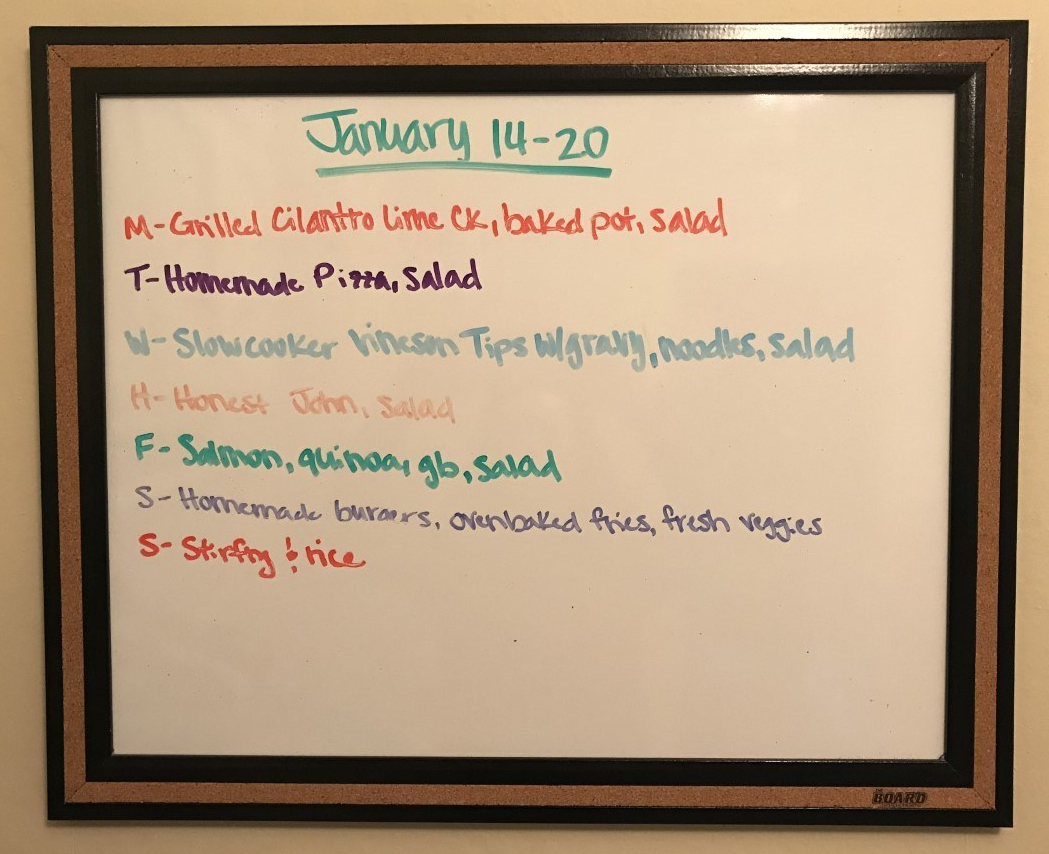 January 14-20
M-Grilled Cilantro Lime Ck, baked pot, salad
T-Homemade Pizza, Salad
W-Slowcooker Vineson Tips w/gravy, noodles, salad
H-Honest John, salad
F-Salmon, quinoa, gb, salad
S-Homemade burgers, ovenbaked fries, fresh veggies
S-Stirfry & rice
BOARD